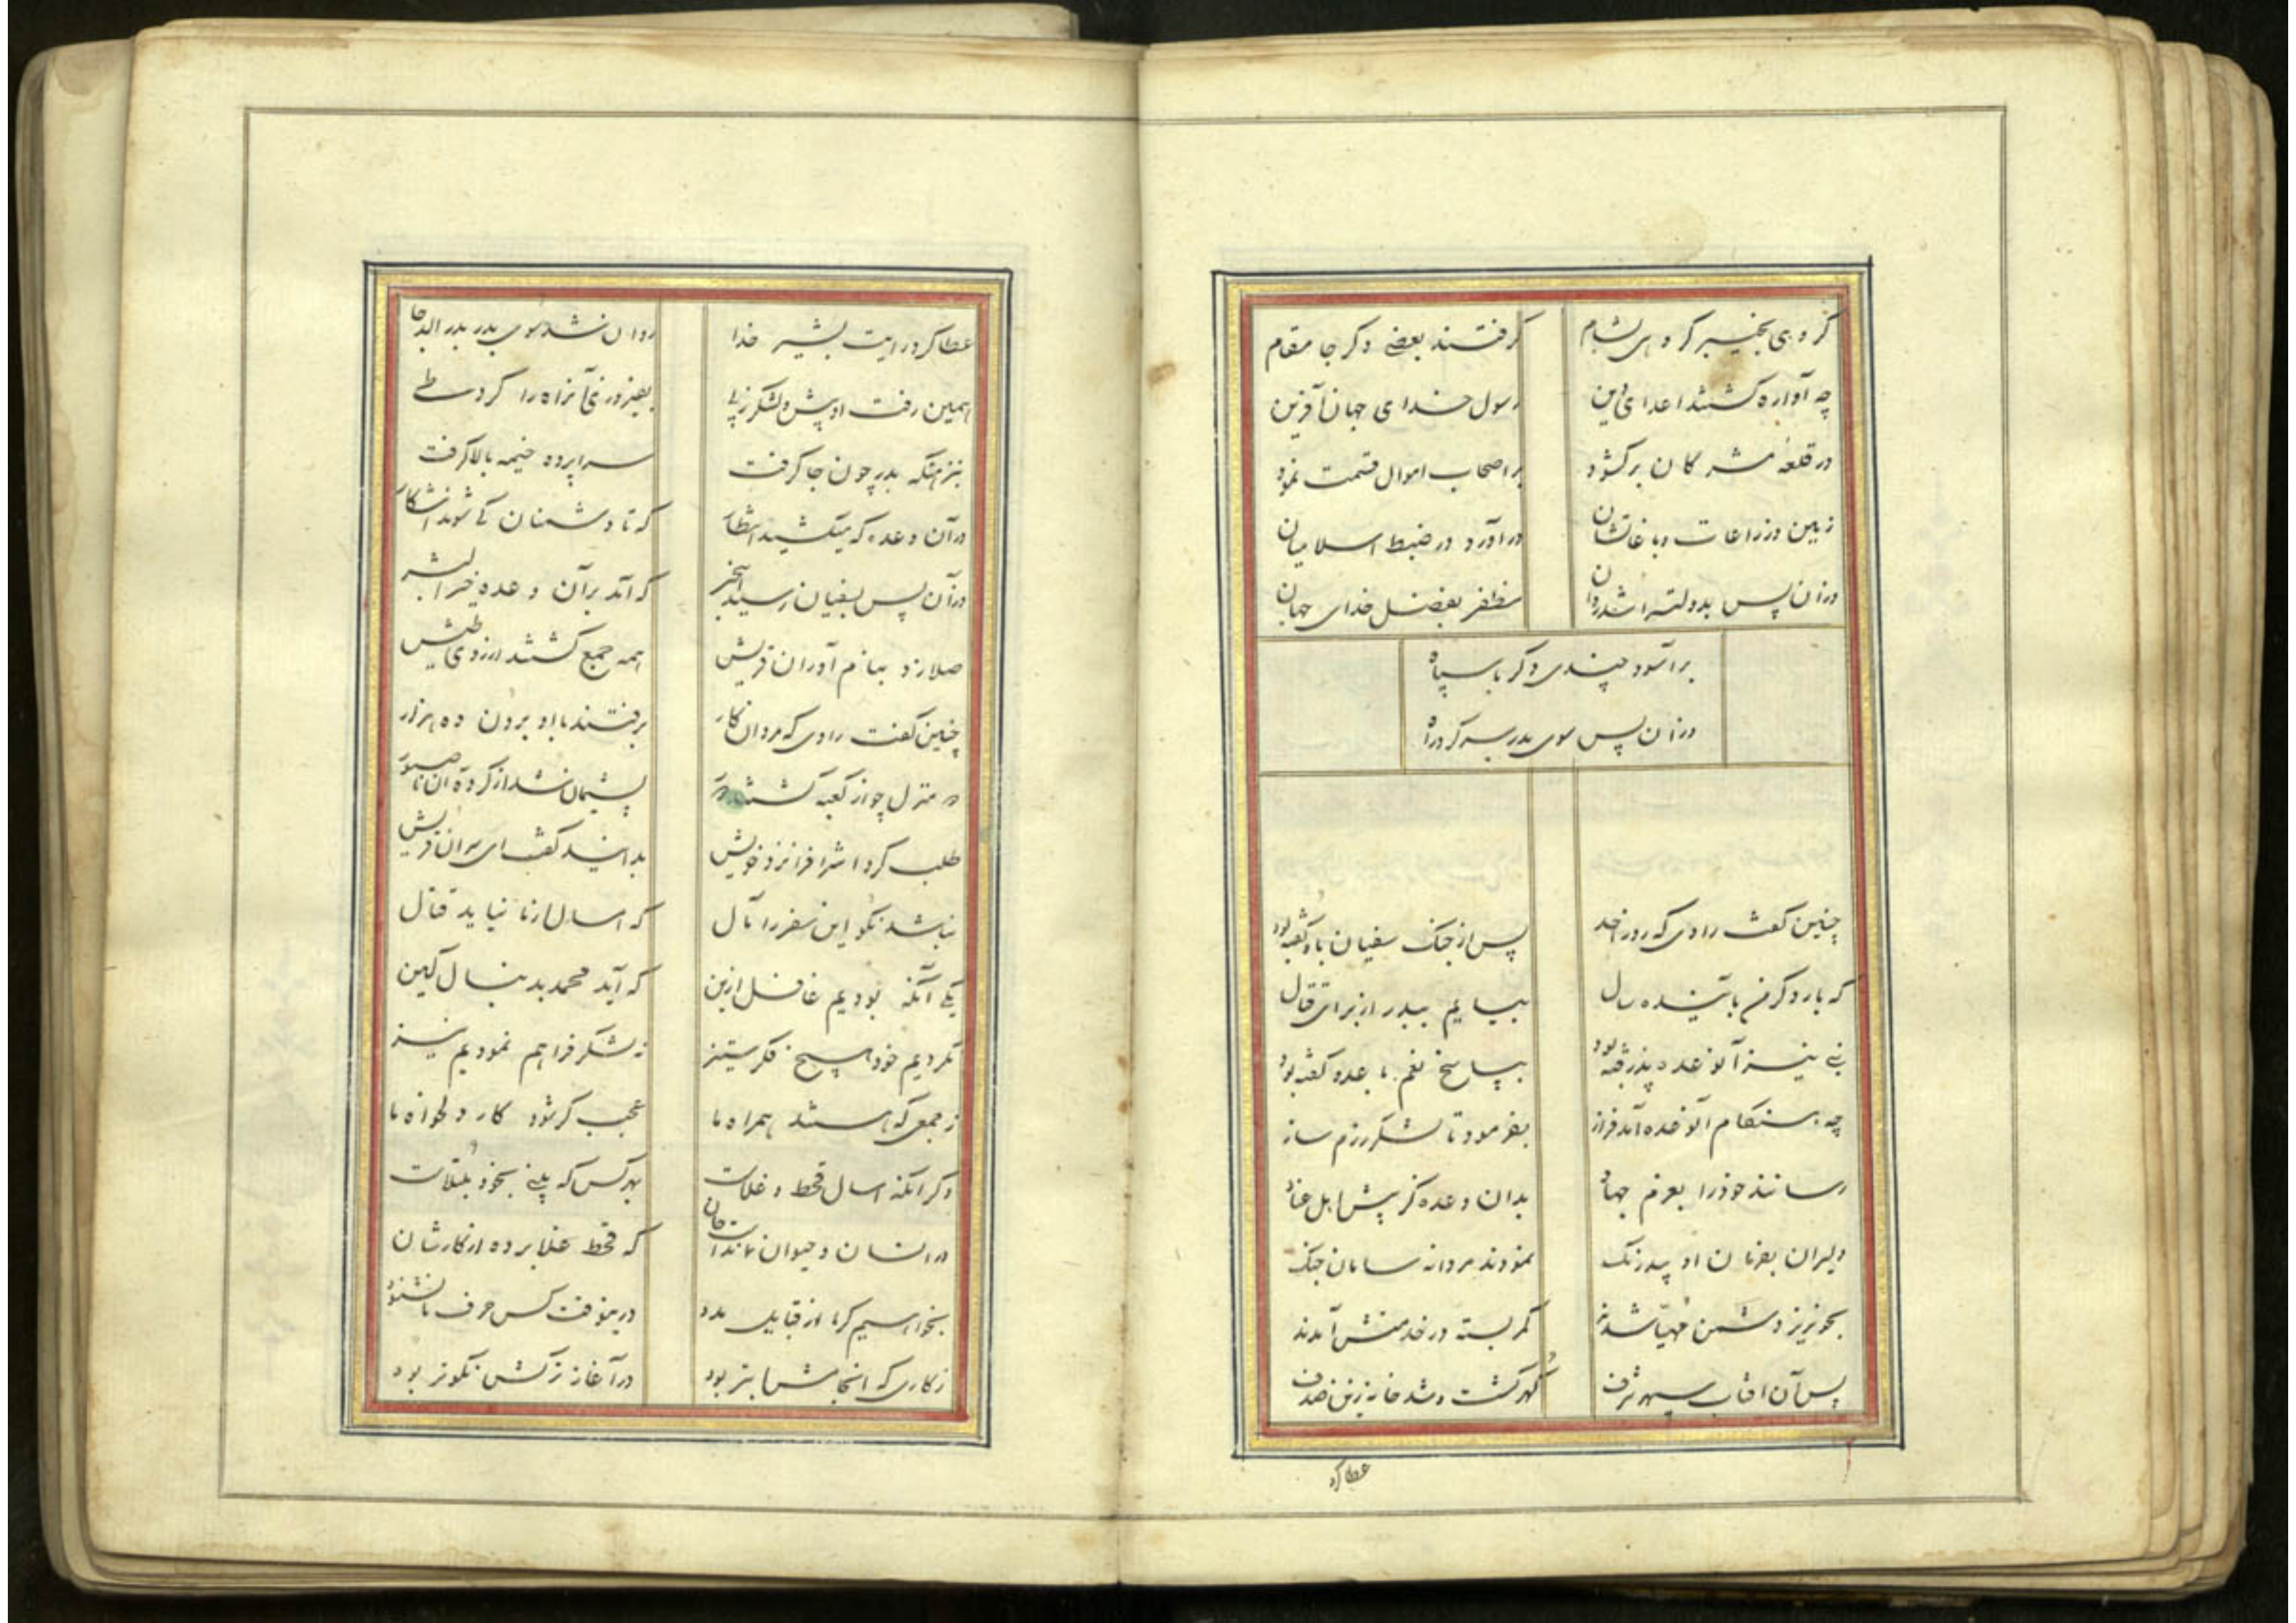 گروهی بخیبر گروهی بشام گرفتند بعضی دگر جا مقام
چه آواره گشتند اعدای دین رسول خدای جهان آفرین
در قلعه مشرکان برگشود بر اصحاب اموال قسمت نمود
زمین و زراعات و باغاتشان درآورد در ضبط اسلامیان
وزان پس بدولتسرا شد روان مظفر بفضل خدای جهان
برآسود چندی دگر با سپاه
وزان پس سوی بدر سر کرد راه
چنین گفت راوی که روز احد پس از جنک سفیان باو گفته بود
که بار دگر من بآینده سال بیایم ببدر از برای قتال
نبی نیز آنوعده پذرفته بود بپاسخ نعم با عدو گفته بود
چه هنگام آنوعده آمد فراز بفرمود تا لشکر رزم ساز
رسانند خود را بعزم جهاد بدان وعده گر پیش اهل عناد
دلیران بفرمان او بیدرنک نمودند مردانه سامان جنک
بخونریز دشمن مهیا شدند کمر بسته در خدمتش آمدند
پس آن افتاب سپهر شرف گهر گشت و شد خانه زین صدف
عطا کرد
عطا کرد رایت بشیر خدا روان شد سوی بدر بدر الدجا
همین رفت او پیش و لشکر ز پی بفیروزی آنراه را کرد طی
بنزهتگه بدر چون جا گرفت سراپرده خیمه بالا گرفت
در آن وعده که میکشید انتظار که تا دشمنان کی شوند آشکار
وز آن پس بسفیان رسید این خبر که آمد بر آن وعده خیر البشر
صلا زد بنام آوران قریش همه جمع گشتند از روی طیش
چنین گفت راوی که مردان کار برفتند با او برون ده هزار
دو منزل چو از کعبه گشتند دور پشیمان شد از کرده آن ناصبور
طلب کرد اشراف را نزد خویش بدانید گفت ای سران قریش
نباشد نکو این سفر را مآل که امسال از ما نیاید قتال
یکی آنکه بودیم غافل ازین که آید محمد بدنبال کین
نکردیم خود هیچ فکر ستیز نه لشکر فراهم نمودیم نیز
ز جمعی که هستند همراه ما عجب گر شود کار دلخواه ما
دگر آنکه امسال قحط و غلاست بهر کس که بینی بخود مبتلاست
در انسان و حیوان نمانداست جان که قحط غلا برده از کارشان
بخواهیم گر ما از قبایل مدد درینوقت کس حرف ما نشنود
ز کاری که انجامش ابتر بود در آغاز ترکش نکوتر بود